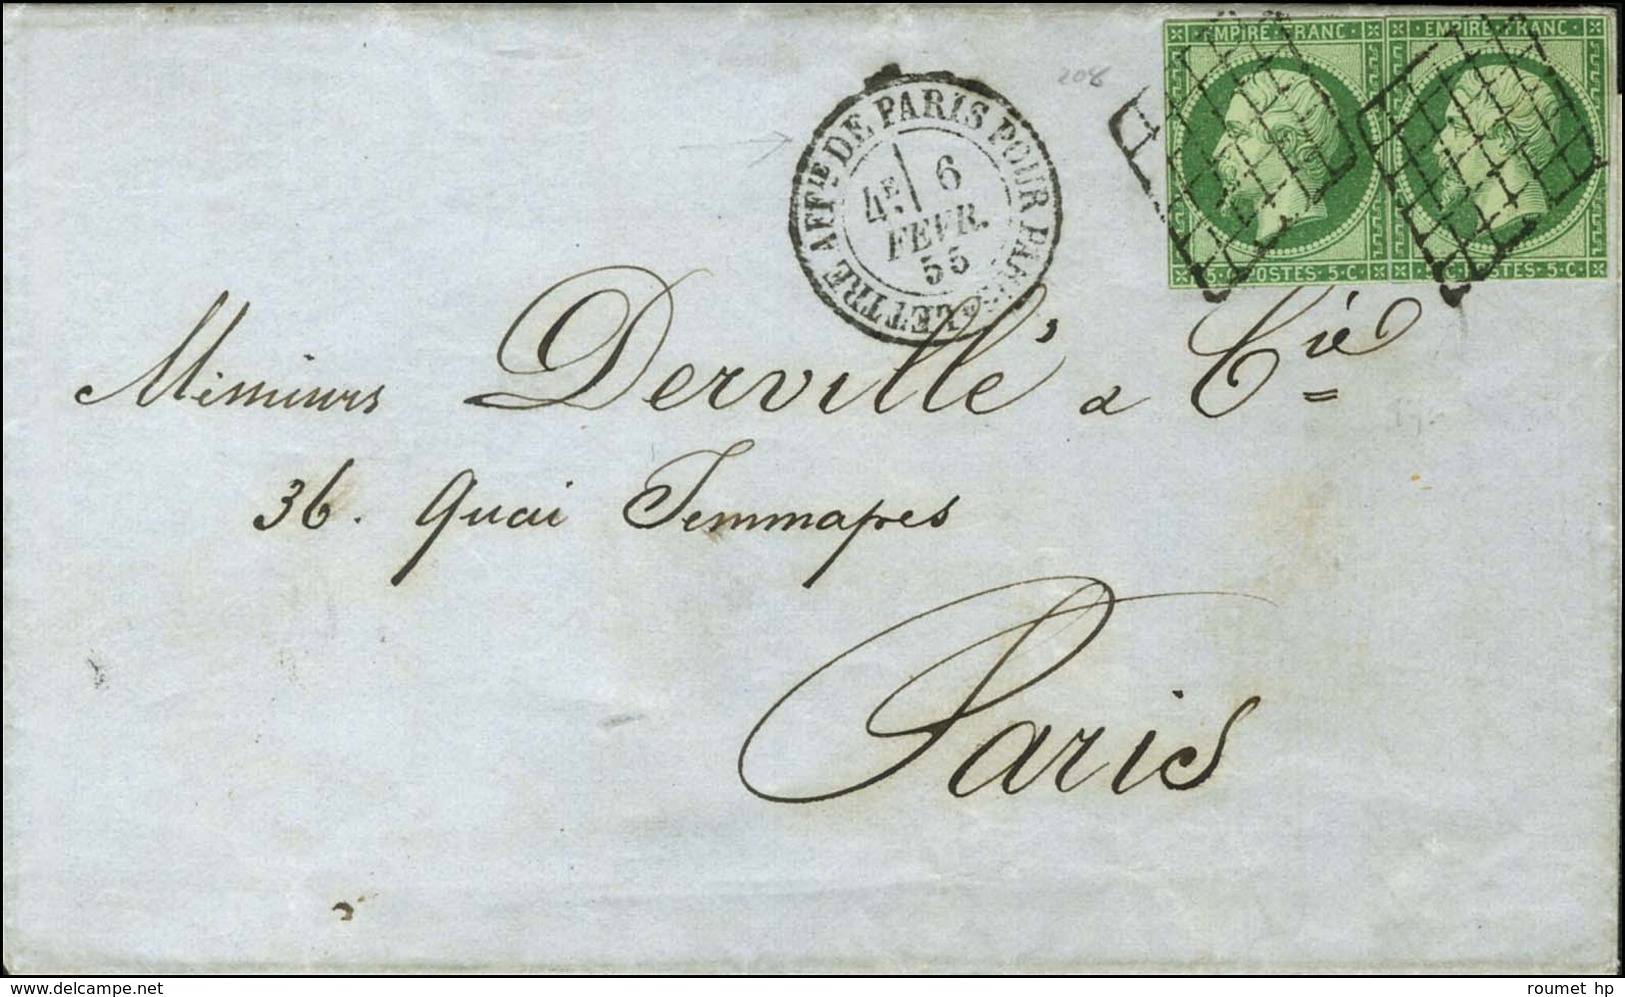 EMPIRE · FRANC · EMPIRE · FRANC ·
208
LETTRE AFFie DE PARIS POUR PARIS
4E 6
FEVR.
55
5·C·POSTES·5·C· 5·C·POSTES·5·C·
Messieurs Dervillé & Cie
36. Quai Jemmapes
Paris
delcampe.net
roumet hp